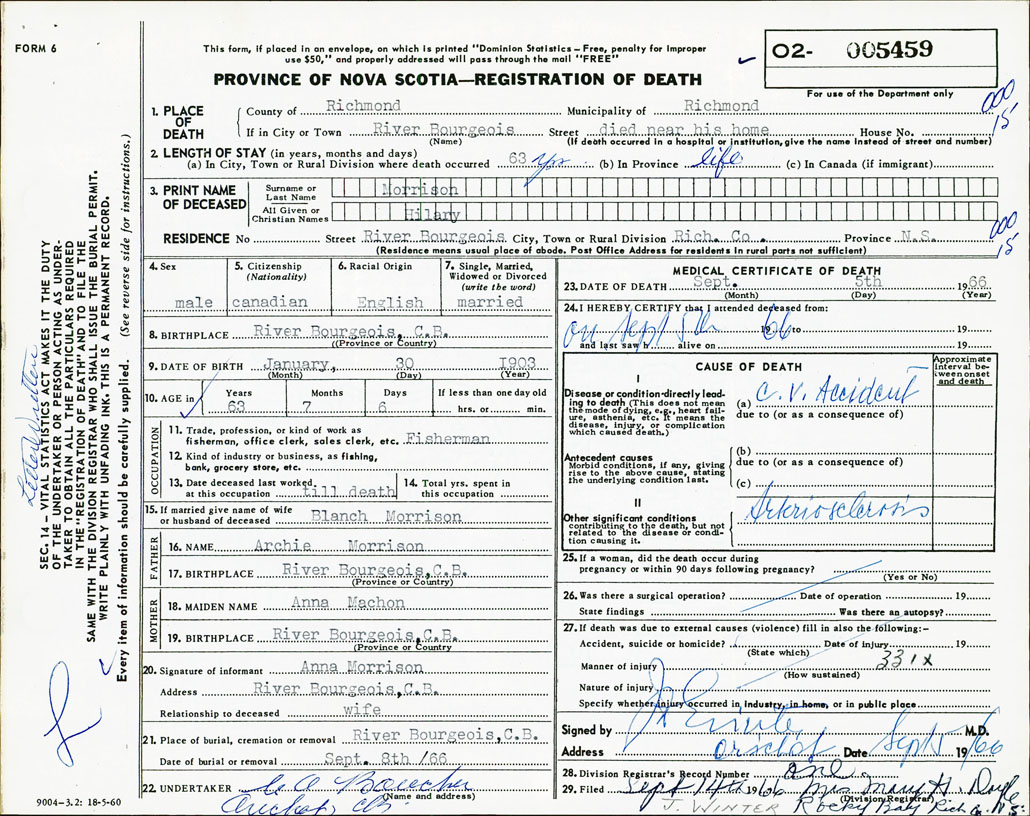 FORM 6
This form, if placed in an envelope, on which is printed "Dominion Statistics – Free, penalty for improper
use $50," and properly addressed will pass through the mail "FREE"
PROVINCE OF NOVA SCOTIA—REGISTRATION OF DEATH
O2- 005459
For use of the Department only
000
15
1. PLACE OF DEATH
County of Richmond Municipality of Richmond
If in City or Town River Bourgeois Street died near his home House No.
(Name) (If death occurred in a hospital or institution, give the name instead of street and number)
2. LENGTH OF STAY (in years, months and days)
(a) In City, Town or Rural Division where death occurred 63 yrs (b) In Province life (c) In Canada (if immigrant)
3. PRINT NAME OF DECEASED
Surname or Last Name Morrison
All Given or Christian Names Hilary
000
15
RESIDENCE No Street River Bourgeois City, Town or Rural Division Rich. Co. Province N.S.
(Residence means usual place of abode. Post Office Address for residents in rural parts not sufficient)
4. Sex male
5. Citizenship (Nationality) canadian
6. Racial Origin English
7. Single, Married, Widowed or Divorced (write the word) married
8. BIRTHPLACE River Bourgeois, C.B.
(Province or Country)
9. DATE OF BIRTH January, 30 1903
(Month) (Day) (Year)
10. AGE in Years Months Days If less than one day old
63 7 6 hrs. or min.
OCCUPATION
11. Trade, profession, or kind of work as
fisherman, office clerk, sales clerk, etc. Fisherman
12. Kind of industry or business, as fishing,
bank, grocery store, etc.
13. Date deceased last worked at this occupation till death
14. Total yrs. spent in this occupation
15. If married give name of wife
or husband of deceased Blanch Morrison
FATHER
16. NAME Archie Morrison
17. BIRTHPLACE River Bourgeois, C.B.
(Province or Country)
MOTHER
18. MAIDEN NAME Anna Machon
19. BIRTHPLACE River Bourgeois, C.B.
(Province or Country
20. Signature of informant Anna Morrison
Address River Bourgeois, C.B.
Relationship to deceased wife
21. Place of burial, cremation or removal River Bourgeois, C.B.
Date of burial or removal Sept. 8th /66
22. UNDERTAKER
(Name and address)
MEDICAL CERTIFICATE OF DEATH
23. DATE OF DEATH Sept. 5th 1966
(Month) (Day) (Year)
24. I HEREBY CERTIFY that I attended deceased from:
on Sept 5th 1966 to 19
and last saw h alive on 19
CAUSE OF DEATH
Approximate interval between onset and death
I
Disease or condition directly leading to death (This does not mean the mode of dying, e.g., heart failure, asthenia, etc. It means the disease, injury, or complication which caused death.)
(a) C.V. Accident
due to (or as a consequence of)
Antecedent causes
Morbid conditions, if any, giving rise to the above cause, stating the underlying condition last.
(b)
due to (or as a consequence of)
(c)
II
Other significant conditions
contributing to the death, but not related to the disease or condition causing it.
Arteriosclerosis
25. If a woman, did the death occur during
pregnancy or within 90 days following pregnancy?
(Yes or No)
26. Was there a surgical operation? Date of operation 19
State findings Was there an autopsy?
27. If death was due to external causes (violence) fill in also the following:–
Accident, suicide or homicide? Date of injury 19
(State which)
331X
Manner of injury
(How sustained)
Nature of injury
Specify whether injury occurred in industry, in home, or in public place
Signed by M.D.
Address Arichat Date Sept 5 1966
28. Division Registrar's Record Number one
29. Filed Sept 14th 1966 Mrs Mary H. Doyle
(Division Registrar)
J. WINTER Rocky Bay Rich Co. N.S.
Letter Written
SEC. 14 – VITAL STATISTICS ACT MAKES IT THE DUTY
OF THE UNDERTAKER OR PERSON ACTING AS UNDER-
TAKER TO OBTAIN ALL THE PARTICULARS REQUIRED
IN THE "REGISTRATION OF DEATH" AND TO FILE THE
SAME WITH THE DIVISION REGISTRAR WHO SHALL ISSUE THE BURIAL PERMIT.
WRITE PLAINLY WITH UNFADING INK. THIS IS A PERMANENT RECORD.
Every item of information should be carefully supplied. (See reverse side for instructions.)
9004-3.2: 18-5-60